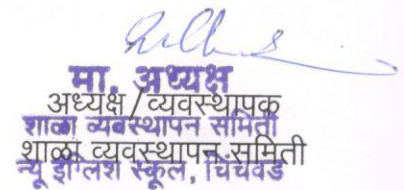 मा. अध्यक्ष
अध्यक्ष/व्यवस्थापक
शाळा व्यवस्थापन समिती
शाळा व्यवस्थापन समिती
न्यू इंग्लिश स्कूल, चिंचवड